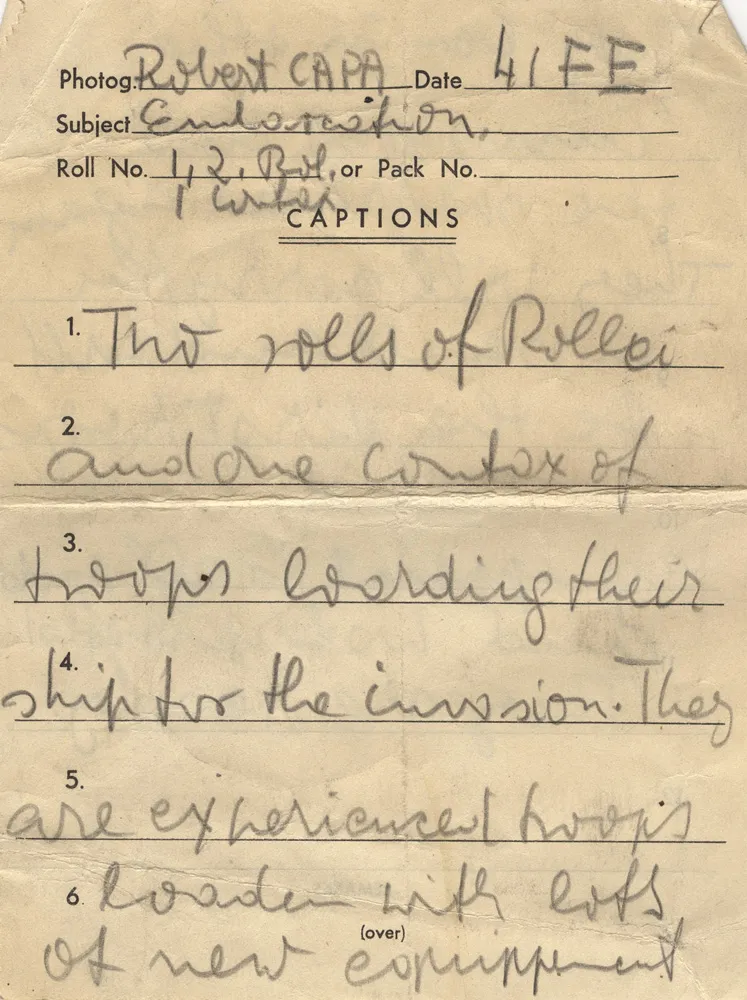 Photog. Robert CAPA Date LIFE
Subject Embarcation.
Roll No. 1, 2, Rol. or Pack No.
1 Contax
CAPTIONS
1. Two rolls of Rollei
2. and one contax of
3. troops boarding their
4. ship for the invasion. They
5. are experienced troops
6. loaden with lots
(over)
of new equippement